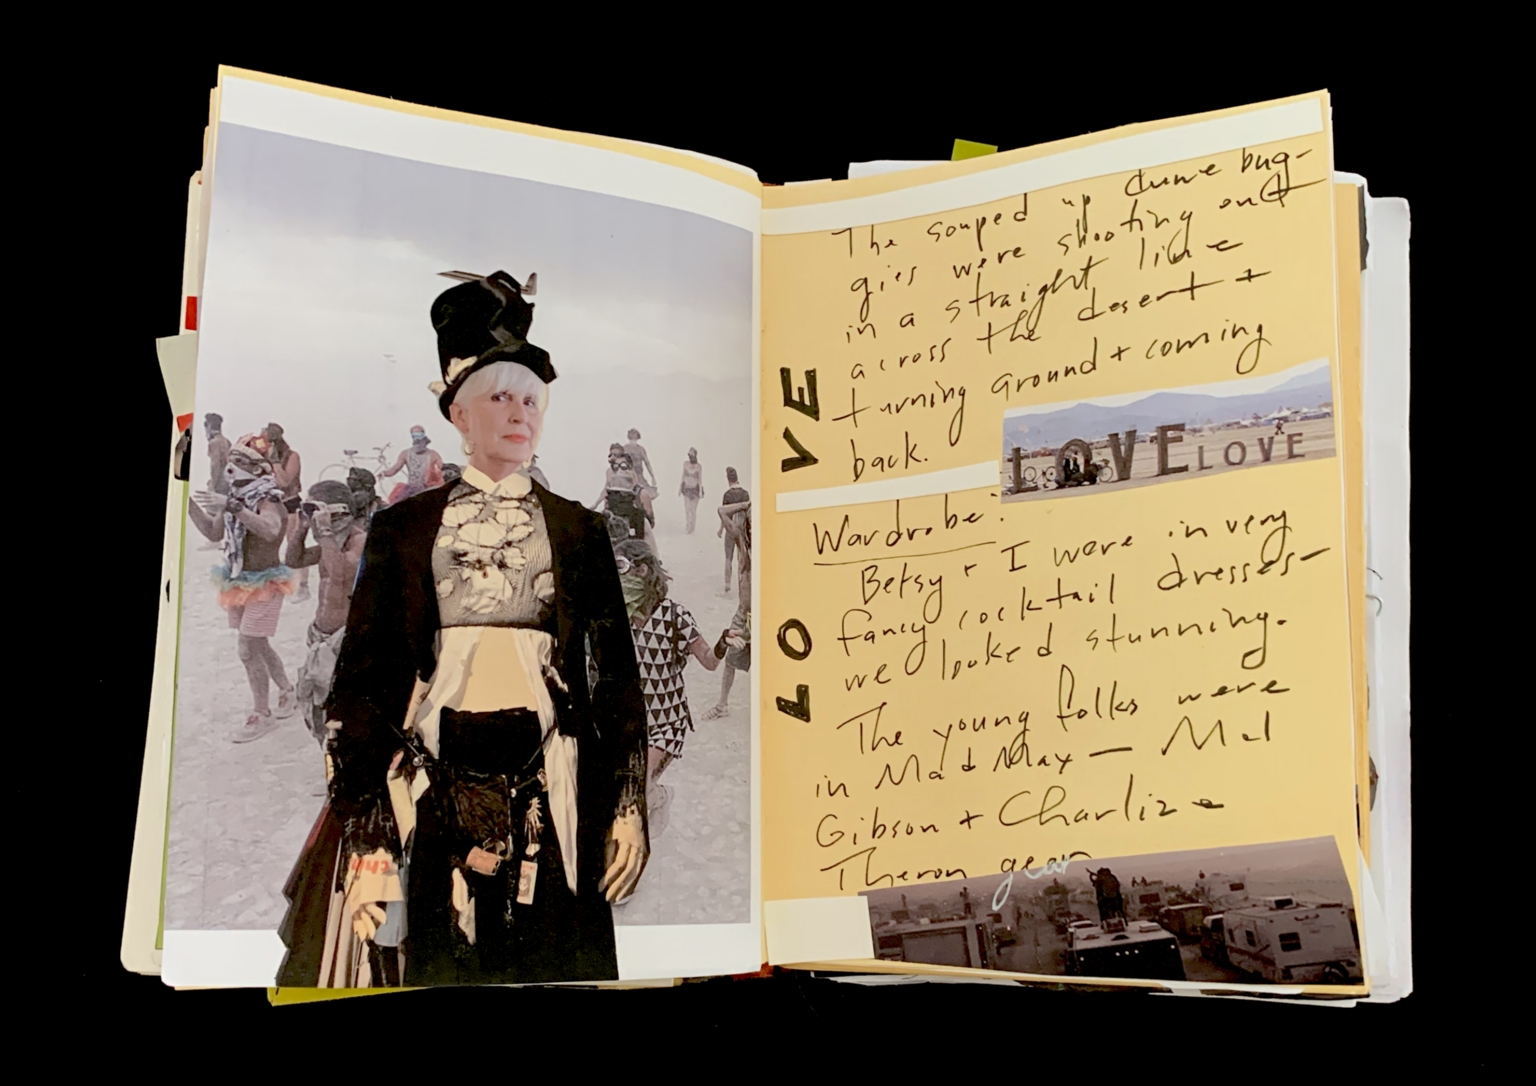 The souped up dune bug-
gies were shooting out
in a straight line
across the desert +
turning around + coming
back.
LOVE
LOVE LOVE
Wardrobe:
Betsy + I were in very
fancy cocktail dresses-
we looked stunning.
The young folks were
in Mad Max — Mel
Gibson + Charlize
Theron gear